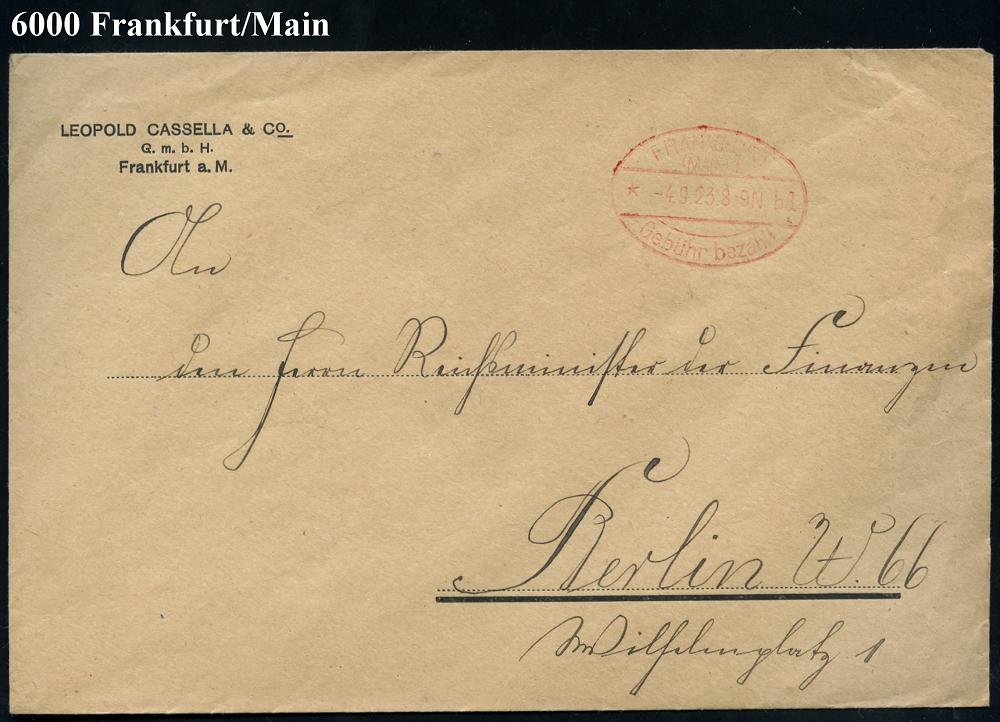 6000 Frankfurt/Main
LEOPOLD CASSELLA & Co.
G. m. b. H.
Frankfurt a. M.
FRANKFURT
(MAIN)
* -4.9.23.8-9N b1
Gebühr bezahlt
An
den Herrn Reichsminister der Finanzen
Berlin W. 66
Wilhelmplatz 1